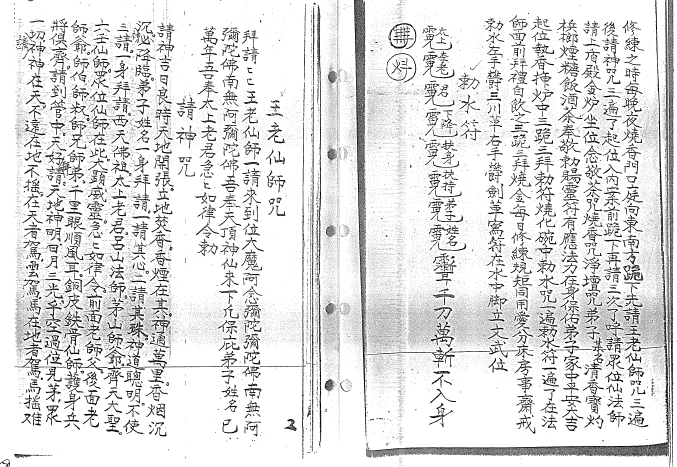 修練之時每晚夜燒香門口庭向東南方跪下先請王老仙師咒三遍
後請神咒三遍了起位入內案前跪下再請三次了呼請眾位仙法師
請上頂殿金炉坐位念敬茶咒燒香咒淨壇咒弟子某名清香寶灼
梹榔煙糖飯酒茶奉敬勅賜靈符有應法力在身保佑弟子家中平安大吉
起位執香揷炉中三跪三拜勅符燒化碗中勅水咒一遍勅水符一遍了在法
師面前拜禮自飲之三跪三拜燒金每日修練規矩同用愛分床房事齋戒
勅水左手爵三川革右手爵劍革寫符在水中脚立丈武位
勅水符
太上老君下降扶身扶持弟子姓名
千刀萬斬不入身
王老仙師咒
拜請〻王老仙師一請來到位大魔阿念彌陀彌陀佛南無阿
彌陀佛南無阿彌陀佛吾奉天頂神仙來下凡保庇弟子姓名已
萬年吾奉太上老君急〻如律令勅
請神咒
請神吉日良時天地開張立地焚香香煙在其神通萬里香烟沉
沉必降臨弟子姓名一身拜請一請其心二請其珠神道聰明不使
三請一身拜請西天佛祖太上老君呂山法師茅山師爺齊天大聖
六壬仙師眾位仙師在此八頭庇靈急〻如律令前面老師公後面老
師爺師伯師叔師兄師弟千里眼順風耳銅皮鉄骨仙師護身兵
將俱齊請到管中天好請天地神明日月三光守空過位見茅眾
一切神神在天不遠在地不搖在天者駕雲駕馬在地者駕馬搖难
2